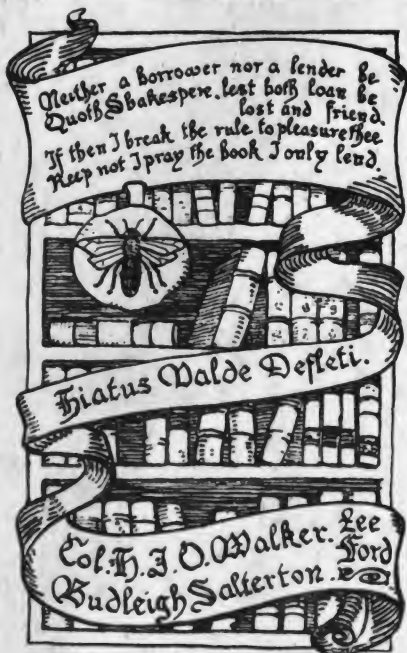 Neither a borrower nor a lender be
Quoth Shakespere, lest both loan be
lost and friend.
If then I break the rule to pleasure thee
Keep not I pray the book I only lend.
Hiatus Valde Defleti.
Col. H. J. O. Walker. Lee
Budleigh Salterton. Ford